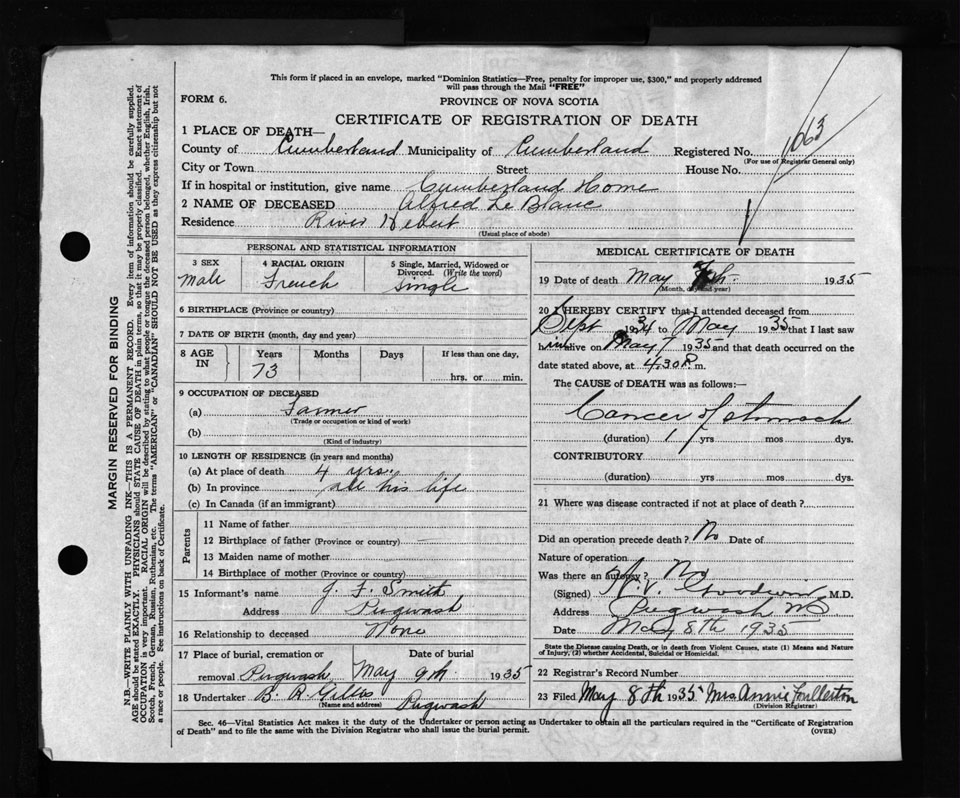 This form if placed in an envelope, marked "Dominion Statistics—Free, penalty for improper use, $300," and properly addressed
will pass through the Mail "FREE"
FORM 6.
PROVINCE OF NOVA SCOTIA
CERTIFICATE OF REGISTRATION OF DEATH
1 PLACE OF DEATH—
County of Cumberland Municipality of Cumberland Registered No. 1063
(For use of Registrar General only)
City or Town Street House No.
If in hospital or institution, give name Cumberland Home
2 NAME OF DECEASED Alfred Le Blanc
Residence River Hebert
(Usual place of abode)
PERSONAL AND STATISTICAL INFORMATION
3 SEX 4 RACIAL ORIGIN 5 Single, Married, Widowed or
Divorced. (Write the word)
Male French Single
6 BIRTHPLACE (Province or country)
7 DATE OF BIRTH (month, day and year)
8 AGE IN Years Months Days If less than one day,
73 hrs. or min.
9 OCCUPATION OF DECEASED
(a) Farmer
(Trade or occupation or kind of work)
(b)
(Kind of industry)
10 LENGTH OF RESIDENCE (in years and months)
(a) At place of death 4 yrs.
(b) In province all his life
(c) In Canada (if an immigrant)
Parents
11 Name of father
12 Birthplace of father (Province or country) —
13 Maiden name of mother
14 Birthplace of mother (Province or country)
15 Informant's name J. F. Smith
Address Pugwash
16 Relationship to deceased None
17 Place of burial, cremation or Date of burial
removal Pugwash May 9th 1935
18 Undertaker B. R. Gillis
(Name and address) Pugwash
MEDICAL CERTIFICATE OF DEATH
19 Date of death May 7th. 1935
(Month, day and year)
20 I HEREBY CERTIFY that I attended deceased from
Sept 1934 to May 1935 that I last saw
him alive on May 7 1935 and that death occurred on the
date stated above, at 4.30 P. m.
The CAUSE of DEATH was as follows:—
Cancer of stomach
(duration) 1 yrs mos dys.
CONTRIBUTORY
(duration) yrs mos dys.
21 Where was disease contracted if not at place of death?
Did an operation precede death? No Date of
Nature of operation
Was there an autopsy? No
(Signed) Goodwin M.D.
Address Pugwash NS
Date May 8th 1935
State the Disease causing Death, or in death from Violent Causes, state (1) Means and Nature
of Injury, (2) whether Accidental, Suicidal or Homicidal.
22 Registrar's Record Number
23 Filed May 8th 1935 Mrs Annie Fullerton
(Division Registrar)
Sec. 46—Vital Statistics Act makes it the duty of the Undertaker or person acting as Undertaker to obtain all the particulars required in the "Certificate of Registration
of Death" and to file the same with the Division Registrar who shall issue the burial permit. (OVER)
MARGIN RESERVED FOR BINDING
N.B.—WRITE PLAINLY WITH UNFADING INK—THIS IS A PERMANENT RECORD. Every item of information should be carefully supplied.
AGE should be stated EXACTLY. PHYSICIANS should STATE CAUSE OF DEATH in plain terms, so that it may be properly classified. Exact statement of
OCCUPATION is very important. RACIAL ORIGIN will be described by stating to what people or tongue the deceased person belonged, whether English, Irish,
Scotch, French, German, Russian, Ruthenian, etc. The terms "AMERICAN" or "CANADIAN" SHOULD NOT BE USED as they express citizenship but not
a race or people. See instructions on back of Certificate.